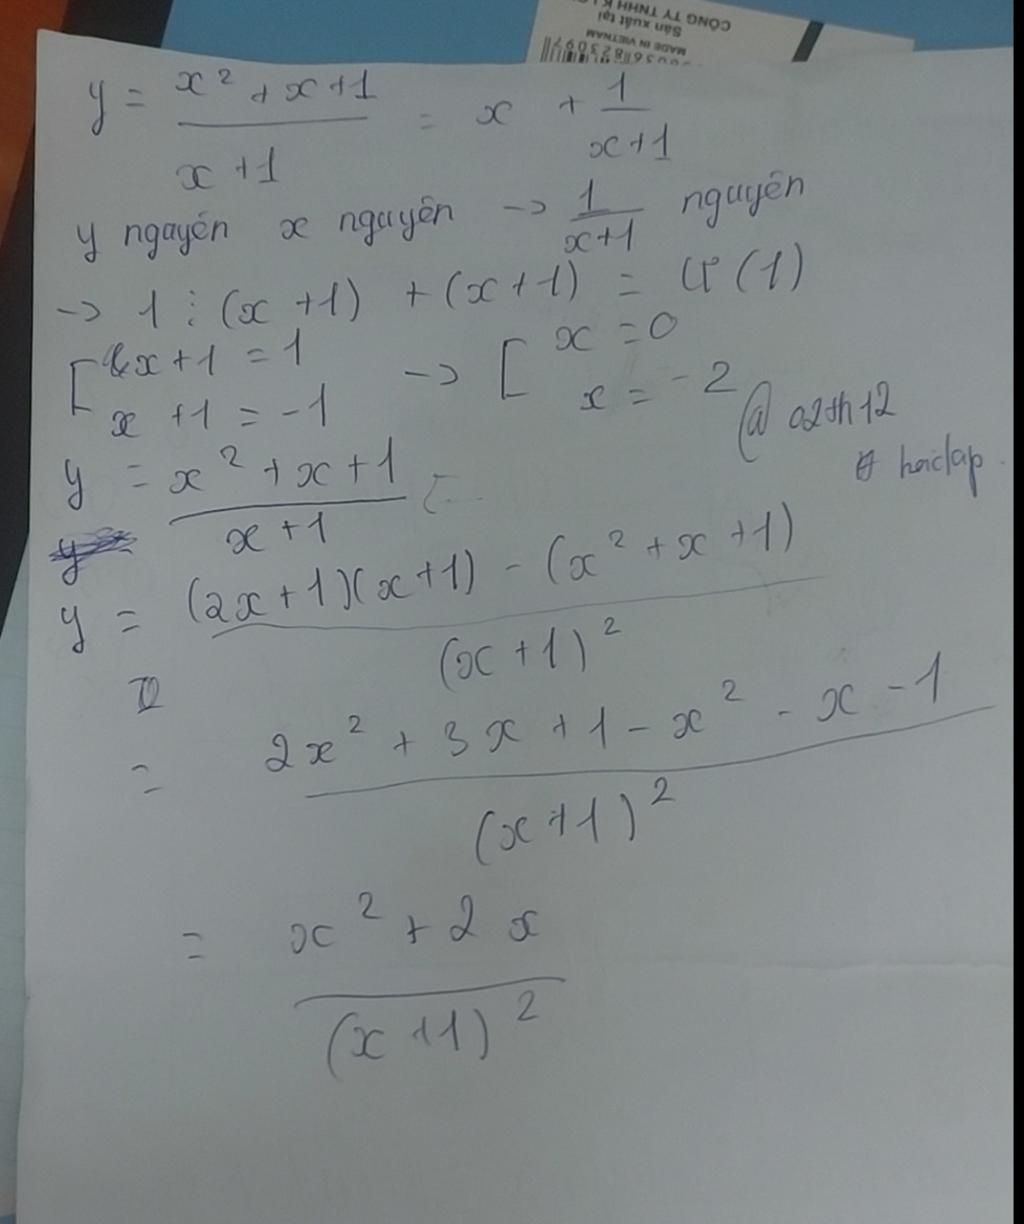 CÔNG TY TNHH K
Sản xuất tại
MADE IN VIETNAM
y = x² + x + 1 / x + 1 = x + 1 / x + 1
y nguyên x nguyên -> 1 / x+1 nguyên
-> 1 ⋮ (x + 1) + (x + 1) = Ư (1)
[ x + 1 = 1 -> [ x = 0
x + 1 = -1 x = -2
@ 02th12
hoclap.
y = x² + x + 1 / x + 1
y = (2x + 1)(x + 1) - (x² + x + 1) / (x + 1)²
= 2x² + 3x + 1 - x² - x - 1 / (x + 1)²
= x² + 2x / (x + 1)²